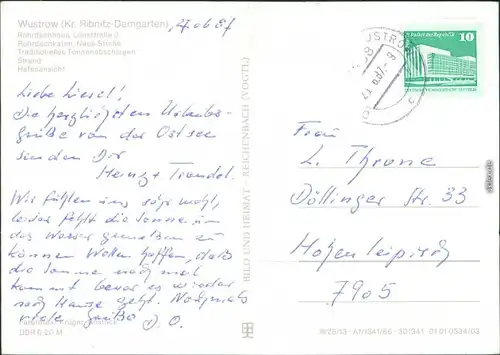 Wustrow (Kr. Ribnitz-Damgarten), 27.06.87
Rohrdachhaus, Lindenstraße 5
Rohrdachkaten, Neue Straße
Traditionelles Tonnenabschlagen
Strand
Hafenansicht
Liebe Liesel!
Die herzlichsten Urlaubs-
grüße von der Ostsee
senden Dir
Heinz + Traudel.
Wir fühlen uns sehr wohl,
leider fehlt die Sonne um
das Wasser genießen zu
können. Wollen hoffen, daß
die Sonne noch mal
kommt bevor es wieder
nach Hause geht. Nochmals
viele Grüße D. O.
DDR 0,20 M
BILD UND HEIMAT REICHENBACH (VOGTL)
WUSTROW
Palast der Republik
10
Frau
L. Throne
Döllinger Str. 33
Hohenleipisch
7905
IV/28/13 A1/1541/86 30/341 01 01 0534/03